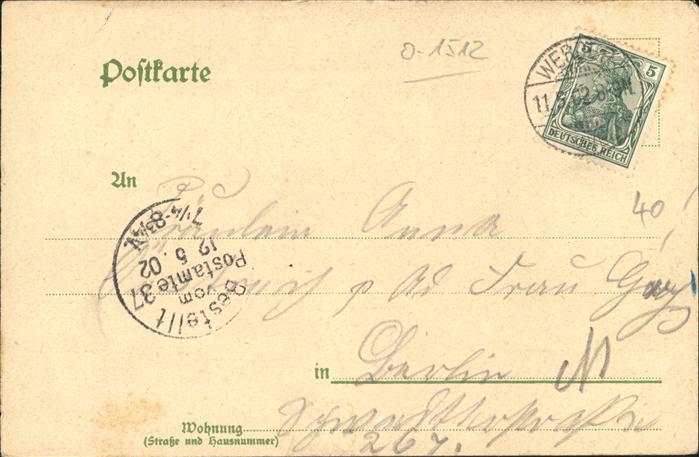 o-1512
Postkarte
5
DEUTSCHES REICH
WER
11.5.02
An Fräulein Anna
40
p Ad Frau
Bestellt
vom
Postamte 37
12.5.02
7¼-8¾N.
in Berlin N
Wohnung
(Straße und Hausnummer)
267.